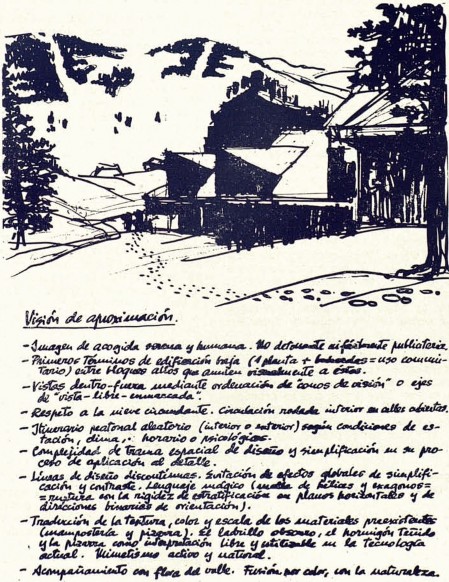 Visión de aproximación.
- Imagen de acogida serena y humana. No detonante ni fácilmente publicitaria.
- Primeros términos de edificación baja (1 planta + = uso comuni-
tario) entre bloques altos que anulen visualmente a éstos.
- Vistas dentro-fuera mediante ordenación de "conos de visión" o ejes
de "vista-libre-enmarcada".
- Respeto a la nieve circundante. Circulación rodada interior en calles abiertas.
- Itinerario peatonal aleatorio (interior o exterior) según condiciones de es-
tación, clima, horario o psicológicas.
- Complejidad de trama espacial de diseño y simplificación en su pro-
ceso de aplicación al detalle.
- Líneas de diseño discontinuas. Evitación de efectos globales de simplifi-
cación y contraste. Lenguaje mágico (malla de hélices y exágonos=
=ruptura con la rigidez de estratificación en planos horizontales y de
direcciones binarias de orientación).
- Traducción de la textura, color y escala de los materiales preexistentes
(mampostería y pizarra). El ladrillo obscuro, el hormigón teñido
y la pizarra como interpretación libre y en la tecnología
actual. Mimetismo activo y natural.
- Acompañamiento con flora del valle. Fusión, por color, con la naturaleza.